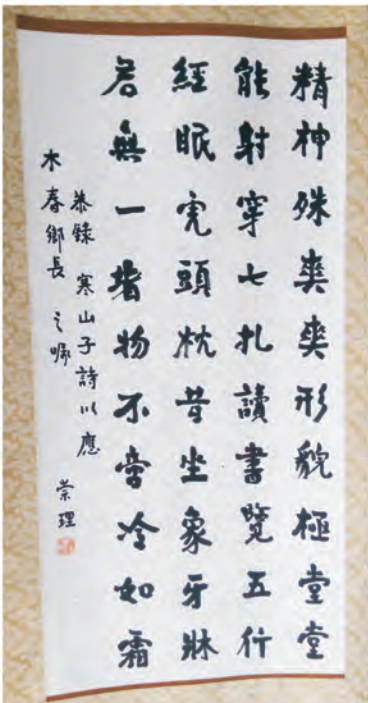 精神殊爽爽形貌極堂堂
能射穿七札讀書覽五行
經眠虎頭枕昔坐象牙牀
若無一堵物不啻冷如霜
恭錄 寒山子詩以應
木春鄉長 之囑
崇理